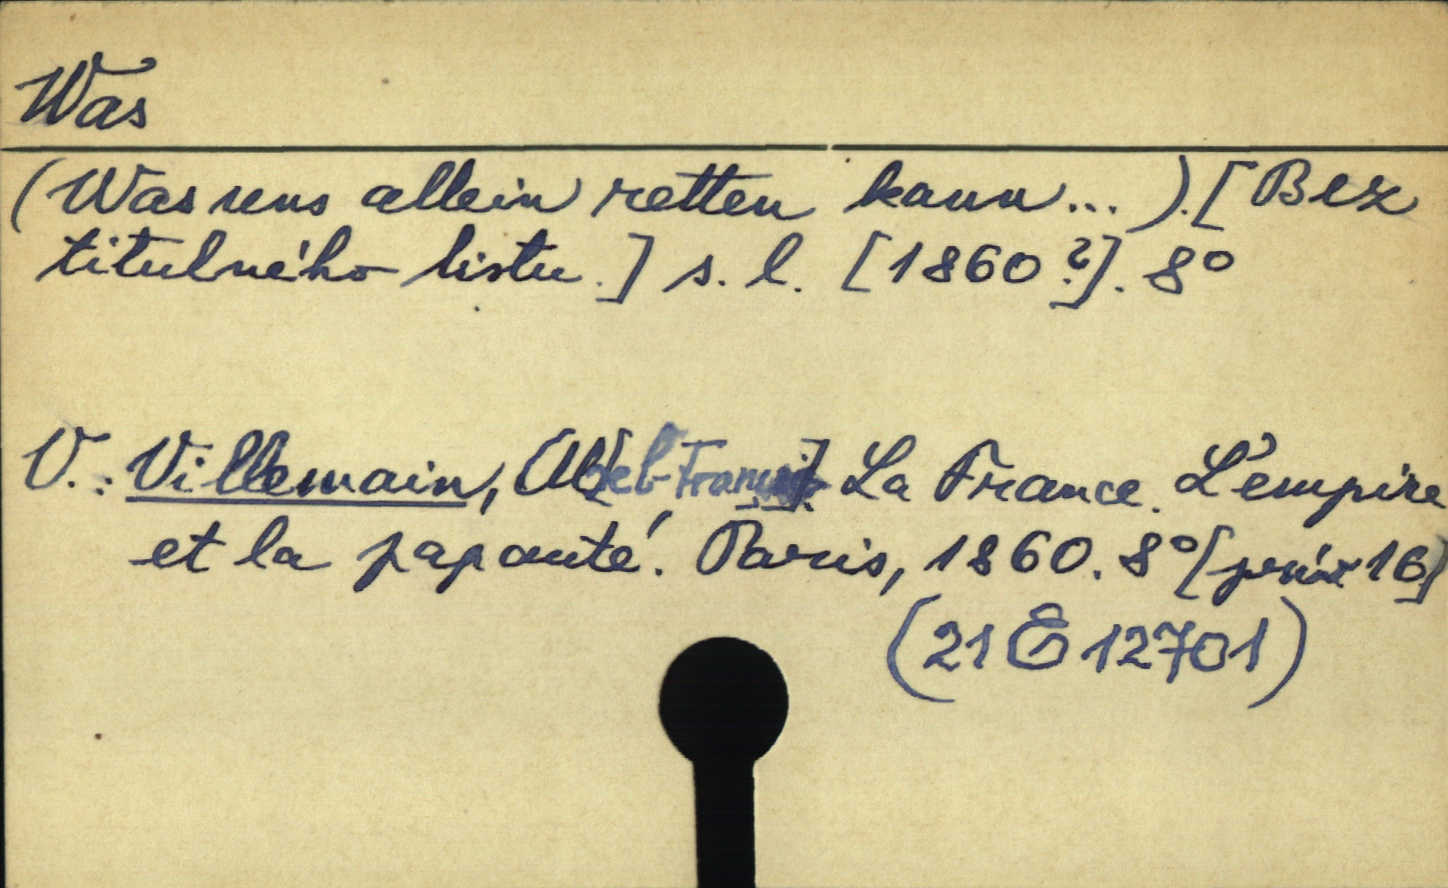 Was
(Was uns allein retten kann...). [Bez
titulného listu.] s. l. [1860?]. 8°
V.: Villemain, A[bel-François] La France. L'empire
et la papauté. Paris, 1860. 8° [přív. 16]
(21 E 12701)